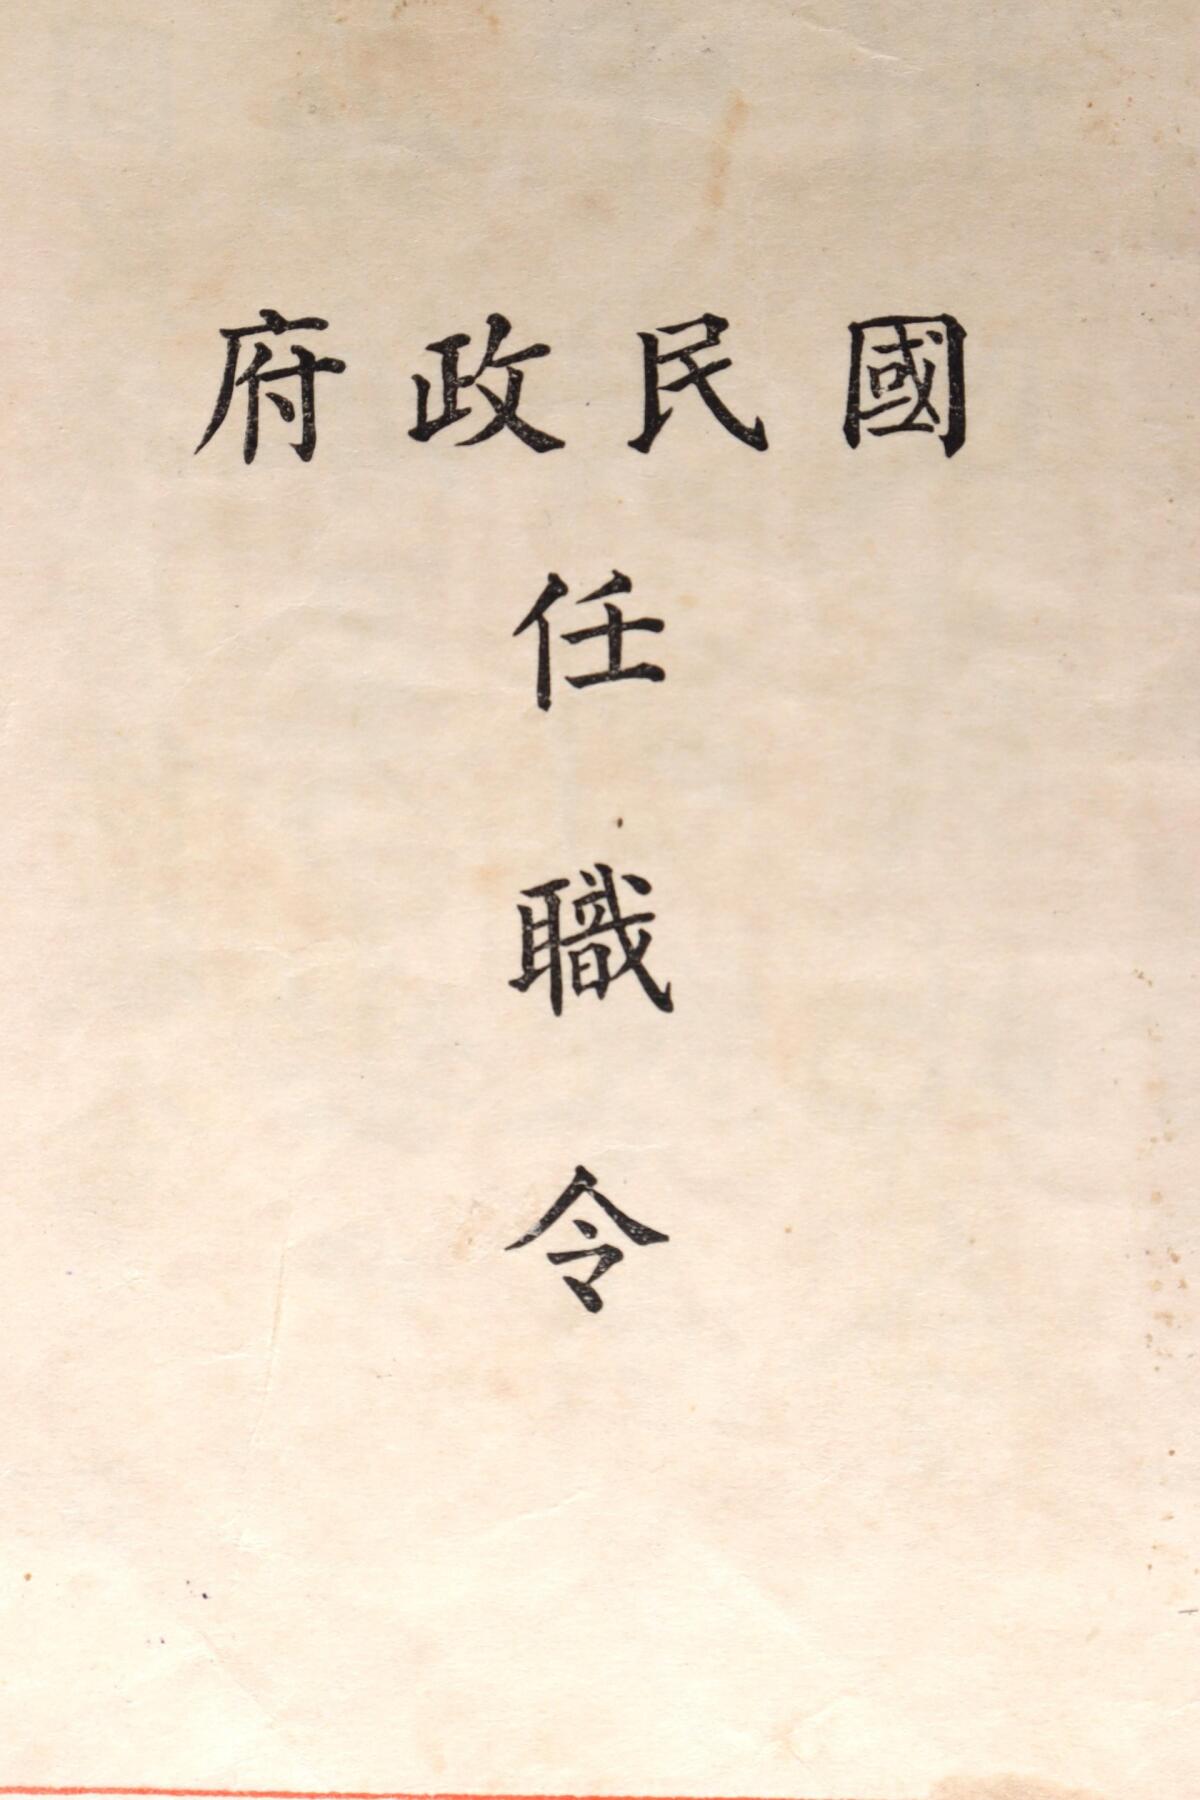 國民政府
任
職
令